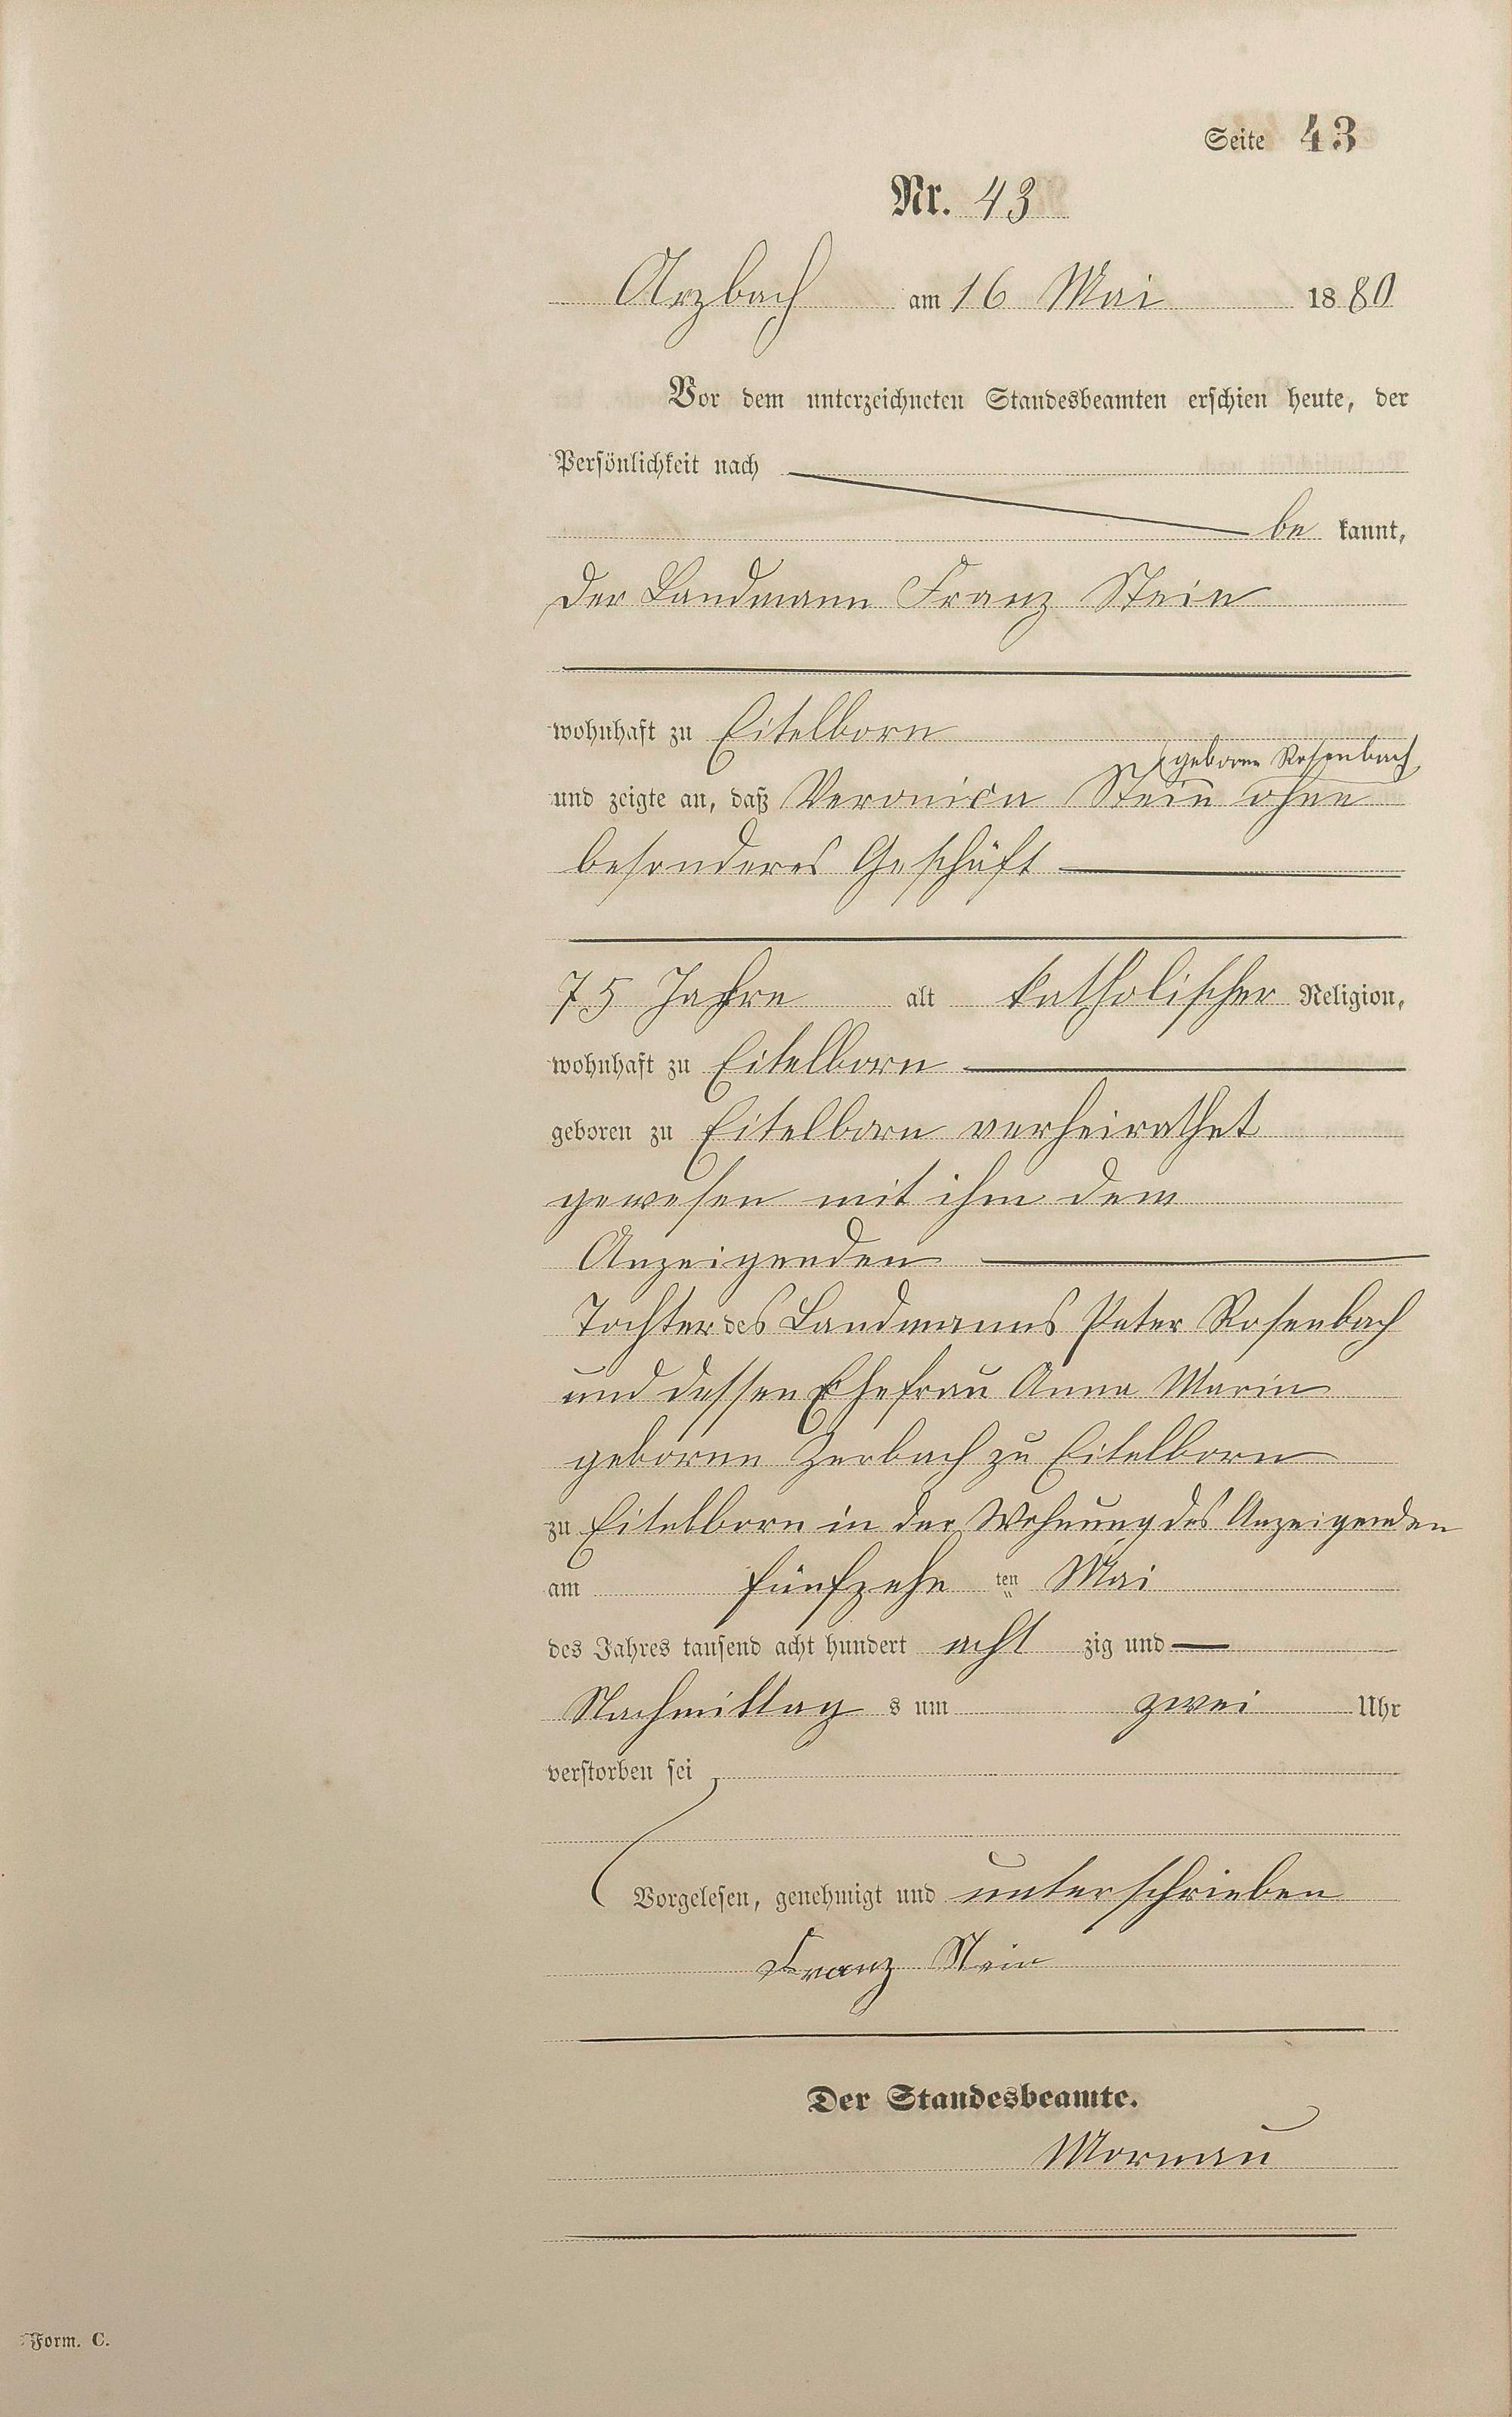 Seite 43
Nr. 43
Arzbach am 16 Mai 1880
Vor dem unterzeichneten Standesbeamten erschien heute, der
Persönlichkeit nach
be kannt,
der Landmann Franz Stein
wohnhaft zu Eitelborn
geborne Rosenbach
und zeigte an, daß Veronica Stein ohne
besonderes Geschäft
75 Jahre alt katholischer Religion,
wohnhaft zu Eitelborn
geboren zu Eitelborn verheirathet
gewesen mit ihm dem
Anzeigenden
Tochter des Landmanns Peter Rosenbach
und dessen Ehefrau Anna Maria
geborne Zerbach zu Eitelborn
zu Eitelborn in der Wohnung des Anzeigenden
am fünfzehn ten Mai
des Jahres tausend acht hundert acht zig und
Nachmittag s um zwei Uhr
verstorben sei
Vorgelesen, genehmigt und unterschrieben
Franz Stein
Der Standesbeamte.
Mornau
Form. C.